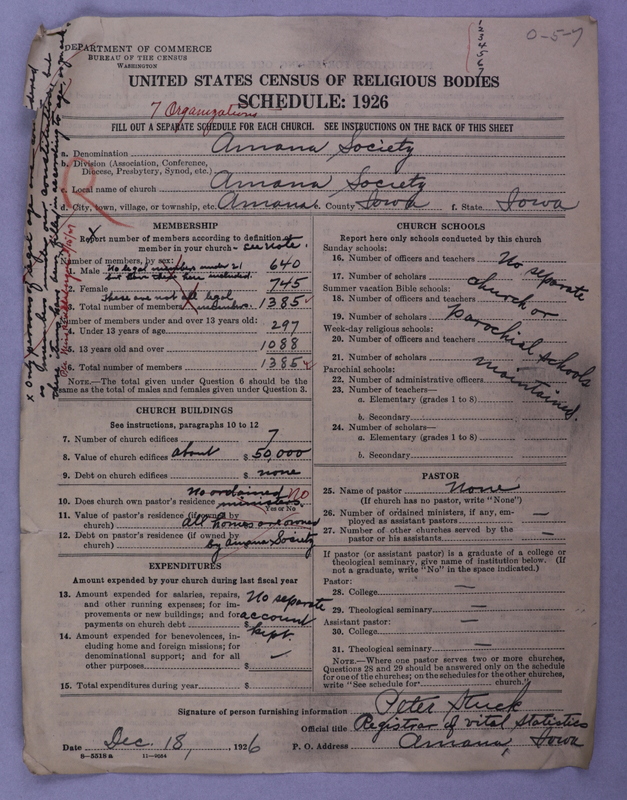 1
2
3
4
5
6
7
0-5-7
DEPARTMENT OF COMMERCE
BUREAU OF THE CENSUS
WASHINGTON
UNITED STATES CENSUS OF RELIGIOUS BODIES
SCHEDULE: 1926
7 Organizations
FILL OUT A SEPARATE SCHEDULE FOR EACH CHURCH. SEE INSTRUCTIONS ON THE BACK OF THIS SHEET
a. Denomination Amana Society
b. Division (Association, Conference, Diocese, Presbytery, Synod, etc.)
c. Local name of church Amana Society
d. City, town, village, or township, etc. Amana e. County Iowa f. State Iowa
MEMBERSHIP
x
Report number of members according to definition of
member in your church— See note.
Number of members, by sex:
1. Male No legal members under 21 640
but these included.
2. Female 745
These are not all legal
3. Total number of members members. 1385
Number of members under and over 13 years old:
4. Under 13 years of age 297
5. 13 years old and over 1088
6. Total number of members 1385
NOTE.—The total given under Question 6 should be the
same as the total of males and females given under Question 3.
CHURCH BUILDINGS
See instructions, paragraphs 10 to 12
7. Number of church edifices 7
8. Value of church edifices about $ 50,000
9. Debt on church edifices $ none
No ordained
10. Does church own pastor's residence ministers No
Yes or No
11. Value of pastor's residence (if owned by
church) All homes are owned
12. Debt on pastor's residence (if owned by
church) by Amana Society
EXPENDITURES
Amount expended by your church during last fiscal year
13. Amount expended for salaries, repairs,
and other running expenses; for im-
provements or new buildings; and for
payments on church debt $
No separate
account
kept.
14. Amount expended for benevolences, in-
cluding home and foreign missions; for
denominational support; and for all
other purposes $ —
15. Total expenditures during year $
CHURCH SCHOOLS
Report here only schools conducted by this church
Sunday schools:
16. Number of officers and teachers
17. Number of scholars
Summer vacation Bible schools:
18. Number of officers and teachers
19. Number of scholars
Week-day religious schools:
20. Number of officers and teachers
21. Number of scholars
Parochial schools:
22. Number of administrative officers
23. Number of teachers—
a. Elementary (grades 1 to 8)
b. Secondary
24. Number of scholars—
a. Elementary (grades 1 to 8)
b. Secondary
No separate
church or
parochial schools
maintained.
PASTOR
25. Name of pastor None
(If church has no pastor, write "None")
26. Number of ordained ministers, if any, em-
ployed as assistant pastors —
27. Number of other churches served by the
pastor or his assistants —
If pastor (or assistant pastor) is a graduate of a college or
theological seminary, give name of institution below. (If
not a graduate, write "No" in the space indicated.)
Pastor:
28. College —
29. Theological seminary —
Assistant pastor:
30. College —
31. Theological seminary —
NOTE.—Where one pastor serves two or more churches,
Questions 28 and 29 should be answered only on the schedule
for one of the churches; on the schedules for the other churches,
write "See schedule for church."
Signature of person furnishing information Peter Stuck
Official title Registrar of vital Statistics
Date Dec. 18, 1926 P. O. Address Amana, Iowa
8-5518 a
x Only persons of legal age are considered